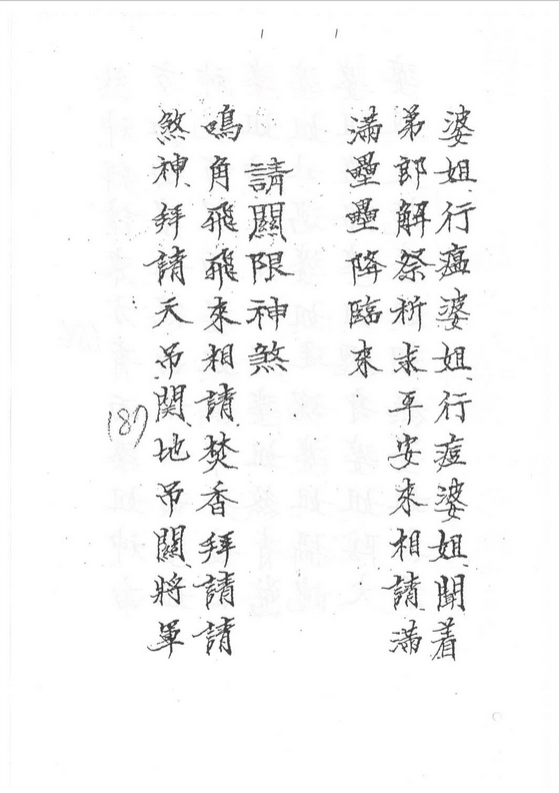 婆姐行瘟婆姐行痘婆姐聞着
弟郎解祭祈求平安來相請滿
滿壘壘降臨來
請關限神煞
鳴角飛飛來相請焚香拜請請
煞神拜請天吊関地吊關將軍
(187)